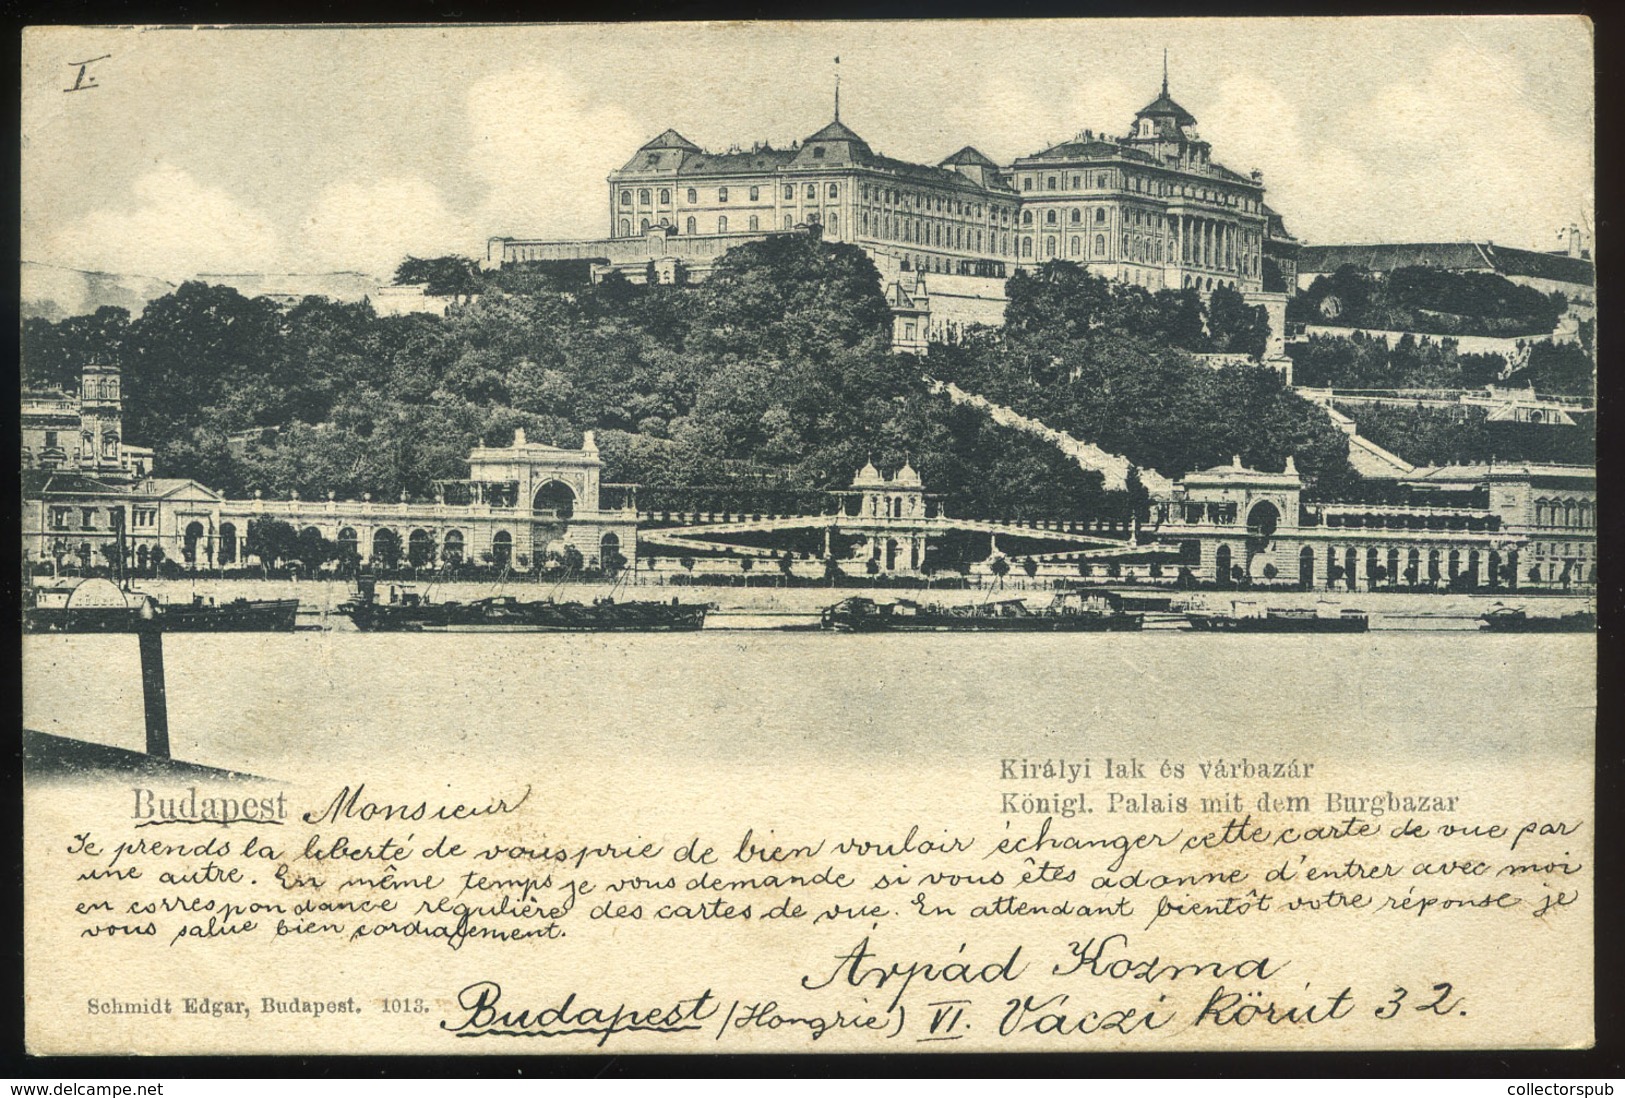 I.
Királyi lak és várbazár
Königl. Palais mit dem Burgbazar
Budapest Monsieur
Je prends la liberté de vous prie de bien vouloir échanger cette carte de vue par
une autre. En même temps je vous demande si vous êtes adonne d'entrer avec moi
en correspondance regulière des cartes de vue. En attendant bientôt votre réponse je
vous salue bien cordialement.
Árpád Kozma
Schmidt Edgar, Budapest. 1013.
Budapest (Hongrie) VI. Váczi körút 32.
United Philatelics
collectorspub